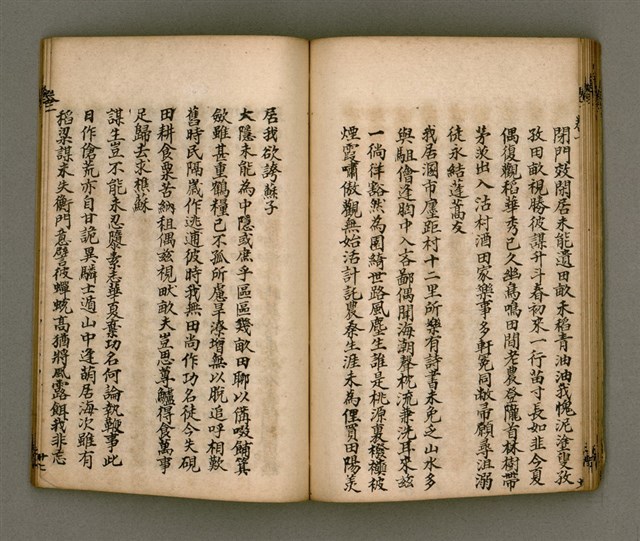 閉門效閒居未能遺田畝禾稻青油油我愧泥塗叟孜
孜田畝視勝彼謀升斗春初來一行苗寸長如韭今夏
偶復觀稻華秀已久幽鳥鳴田間老農登隴首林樹帶
茅茨出入沽村酒田家樂事多軒冕同敝帚願尋沮溺
徒永結蓬蒿友
我居闤市廛距村十二里所樂有詩書未免乏山水多
與駔儈逢胸中入吝鄙偶聞海潮聲枕流兼洗耳來茲
一徜徉豁然為園綺世路風塵生誰是桃源裏襏襫被
煙霞嘯傲觀無始活計託農桑生涯未為俚買田陽羨
居我欲誇蘇子
大隱未能為中隱或庶乎區區幾畝田聊以備啜餔箕
斂雖甚重鶴糧已不孤所慮旱潦增無以脫追呼相歎
舊時民隔歲作逃逋彼時我無田尚作功名徒今失硯
田耕食粟苦納租偶茲視畎畝夫豈思尊鱸得食萬事
足歸去求樵蘇
謀生豈不能未忍隳素志華夏棄功名何論執鞭事此
日作傖荒亦自甘詭異驎士遁山中逢萌居海次雖有
稻粱謀未失衡門意譬彼蟬蛻高猶將風露餌我非忘